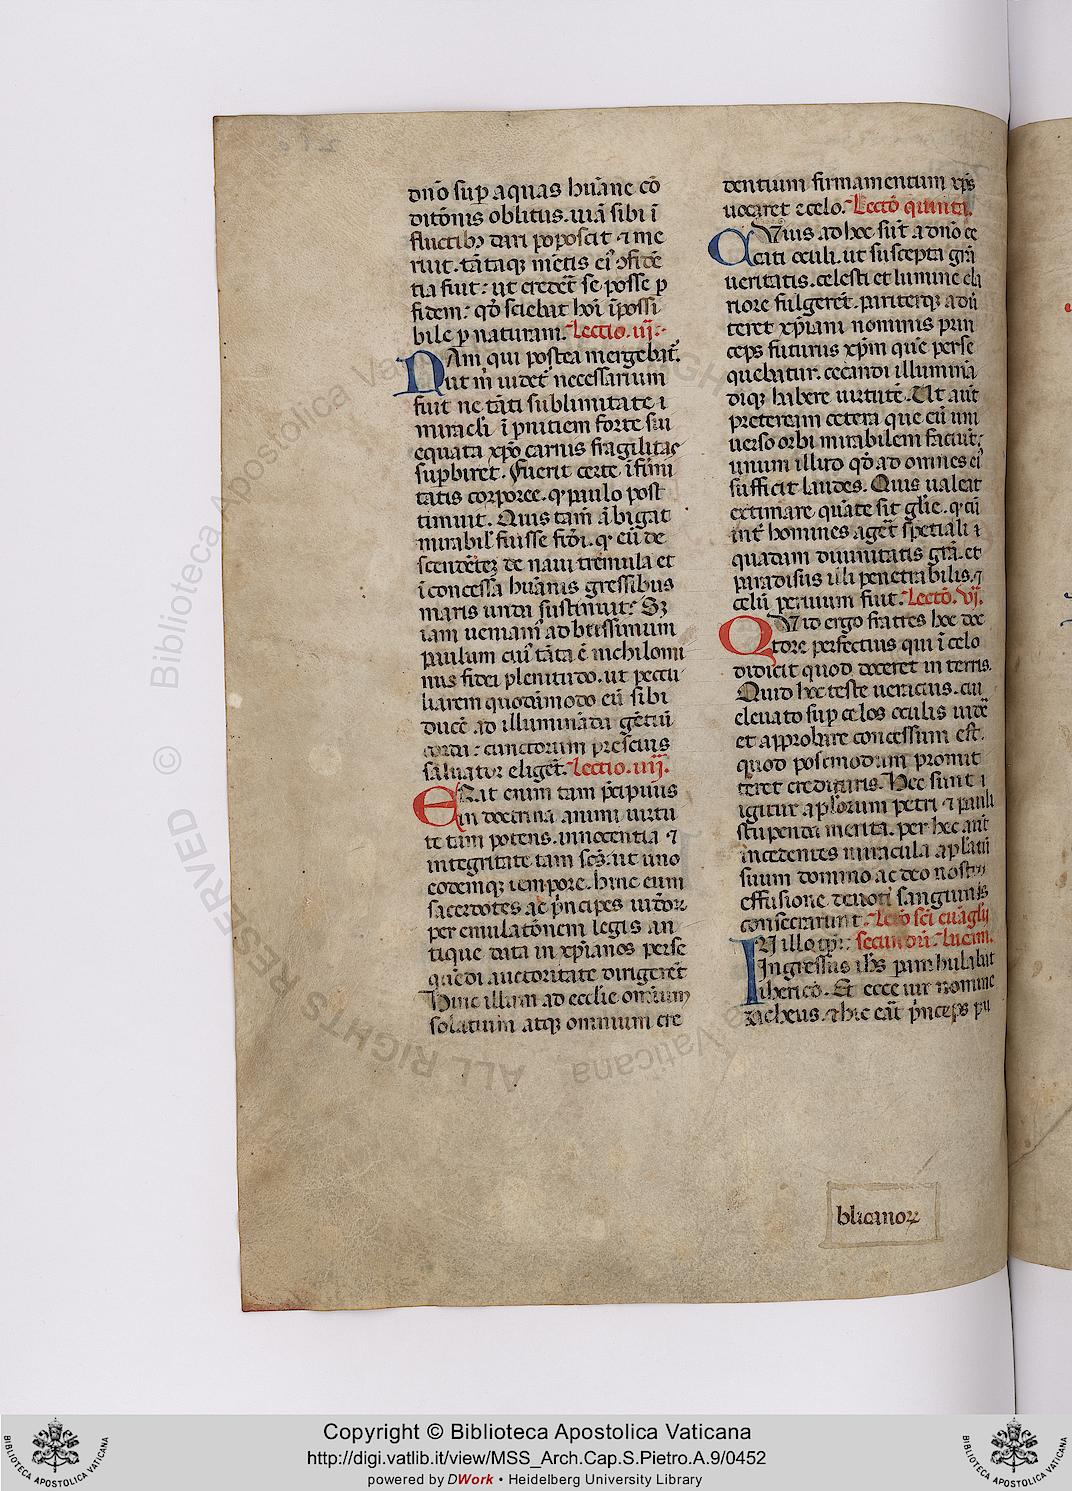 dnō sup aquas huāne cō
ditōnis oblitus. uiā sibi ī
fluctibȝ dari poposcit ⁊ me
ruit. tātaqȝ mētis eiꝰ ꝯfidē
tia fuit: ut credet̄ se posse ꝑ
fidem: qđ sciebat hoī īpossi
bile ꝑ naturam. Lectio. iij.
Nam qui postea mergebat̄.
ut m̄ uidet̄ necessarium
fuit ne tāti sublimitate i
miracl̄i ī pnitiem forte sui
equata xp̄o carnis fragilitas
supbiret. Fuerit certe īfirmi
tatis corporee. qꝛ paulo post
timuit. Quis tam̄ ābigat
mirabil̄ fuisse fidei. qꝛ eū de
scendēteȝ de naui tremula et
ī concessa huānis gressibus
maris unda sustinuit: Sȝ
iam ueniam ad btissimum
paulum cuiꝰ tāta ē nichilomi
nus fidei plenitudo. ut peccu
liarem quodāmodo eū sibi
ducē ad illuminādā gētiū
corda: cunctorum prescius
saluator eliget̄. Lectio. iiij.
Erat enim tam p̄cipuus
in doctrina animi uirtu
te tam potens. innocentia ⁊
integritate tam scs̄. ut uno
eodemqȝ tempore. hinc eum
sacerdotes ac p̄ncipes iudeoꝝ
per emulatōnem legis an
tique data in xp̄ianos perse
quēdi auctoritate dirigeret̄
Hinc illam ad ecclie omnium
solatium atqȝ omnium cre
dentium firmamentum xp̄s
uocaret e celo. Lectō quinta.
Cuius ad hoc sūt a dnō ce
cati oculi. ut suscepta grā
ueritatis. celesti et lumine cla
riore fulgeret. pariterqȝ adu
teret xp̄iani nominis prin
ceps futurus xp̄m quē perse
quebatur. cecandi illumina
diqȝ habere uirtutē. Ut aut̄
preteream cetera que eū uni
uerso orbi mirabilem faciūt:
unum illud qđ ad omnes eiꝰ
sufficit laudes. Quis ualeat
extimare quāte sit glīe. qꝛ cū
int̄ homines aget̄ spetiali ⁊
quadam diuinitatis grā. et
paradisus illi penetrabilis. ⁊
celū peruium fuit. Lectō. vj.
Quid ergo fratres hoc doc
tore perfectius qui ī celo
didicit quod doceret in terris.
Quid hoc teste ueracius. cui
eleuato sup celos oculis uidē
et approbare concessum est.
quod posmodum promit
teret credituris. Hec sunt i
igitur aplōrum petri ⁊ pauli
stupenda merita. per hec aut̄
incedentes miracula aplātū
suum domino ac deo nostro
effusione deuoti sanguinis
consecrarunt. Lectō sc̄i euāglij
In illo tp̄r: secundū. lucam.
Ingressus ihs̄ pambulabat
iherico. Et ecce uir nomine
zacheus. ⁊ hic erat p̄nceps pu
blicanoꝝ
Copyright © Biblioteca Apostolica Vaticana
http://digi.vatlib.it/view/MSS_Arch.Cap.S.Pietro.A.9/0452
powered by DWork • Heidelberg University Library